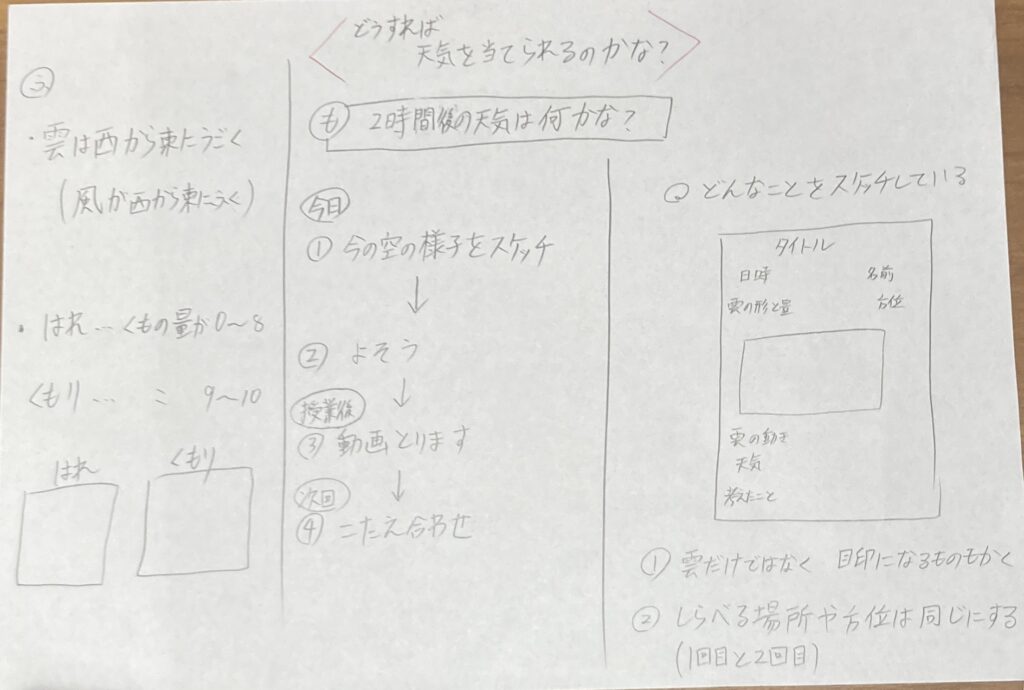 どうすれば
天気を当てられるのかな?
も 2時間後の天気は何かな?
ふ
・雲は西から東にうごく
(風が西から東にふく)
・はれ…くもの量が0~8
くもり… 〃 9~10
はれ
くもり
今日
① 今の空の様子をスケッチ
↓
② よそう
↓
授業後
③ 動画とります
↓
次回
④ こたえ合わせ
Q どんなことをスケッチしている
タイトル
日時 名前
雲の形と量 方位
雲の動き
天気
考えたこと
① 雲だけではなく 目印になるものもかく
② しらべる場所や方位は同じにする
(1回目と2回目)